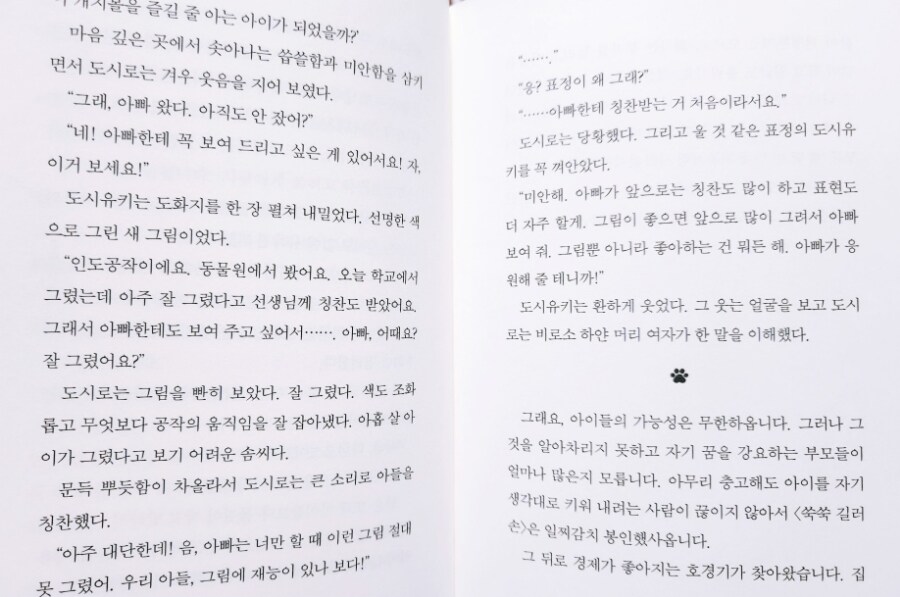 캐치볼을 즐길 줄 아는 아이가 되었을까?'
마음 깊은 곳에서 솟아나는 씁쓸함과 미안함을 삼키
면서 도시로는 겨우 웃음을 지어 보였다.
“그래, 아빠 왔다. 아직도 안 잤어?”
“네! 아빠한테 꼭 보여 드리고 싶은 게 있어서요! 자,
이거 보세요!”
도시유키는 도화지를 한 장 펼쳐 내밀었다. 선명한 색
으로 그린 새 그림이었다.
“인도공작이에요. 동물원에서 봤어요. 오늘 학교에서
그렸는데 아주 잘 그렸다고 선생님께 칭찬도 받았어요.
그래서 아빠한테도 보여 주고 싶어서……. 아빠, 어때요?
잘 그렸어요?”
도시로는 그림을 빤히 보았다. 잘 그렸다. 색도 조화
롭고 무엇보다 공작의 움직임을 잘 잡아냈다. 아홉 살 아
이가 그렸다고 보기 어려운 솜씨다.
문득 뿌듯함이 차올라서 도시로는 큰 소리로 아들을
칭찬했다.
“아주 대단한데! 음, 아빠는 너만 할 때 이런 그림 절대
못 그렸어. 우리 아들, 그림에 재능이 있나 보다!”
“…….”
“응? 표정이 왜 그래?”
“……아빠한테 칭찬받는 거 처음이라서요.”
도시로는 당황했다. 그리고 울 것 같은 표정의 도시유
키를 꼭 껴안았다.
“미안해. 아빠가 앞으로는 칭찬도 많이 하고 표현도
더 자주 할게. 그림이 좋으면 앞으로 많이 그려서 아빠
보여 줘. 그림뿐 아니라 좋아하는 건 뭐든 해. 아빠가 응
원해 줄 테니까!”
도시유키는 환하게 웃었다. 그 웃는 얼굴을 보고 도시
로는 비로소 하얀 머리 여자가 한 말을 이해했다.
그래요, 아이들의 가능성은 무한하옵니다. 그러나 그
것을 알아차리지 못하고 자기 꿈을 강요하는 부모들이
얼마나 많은지 모릅니다. 아무리 충고해도 아이를 자기
생각대로 키워 내려는 사람이 끊이지 않아서 〈쑥쑥 길러
손〉은 일찌감치 봉인했사옵니다.
그 뒤로 경제가 좋아지는 호경기가 찾아왔습니다. 집